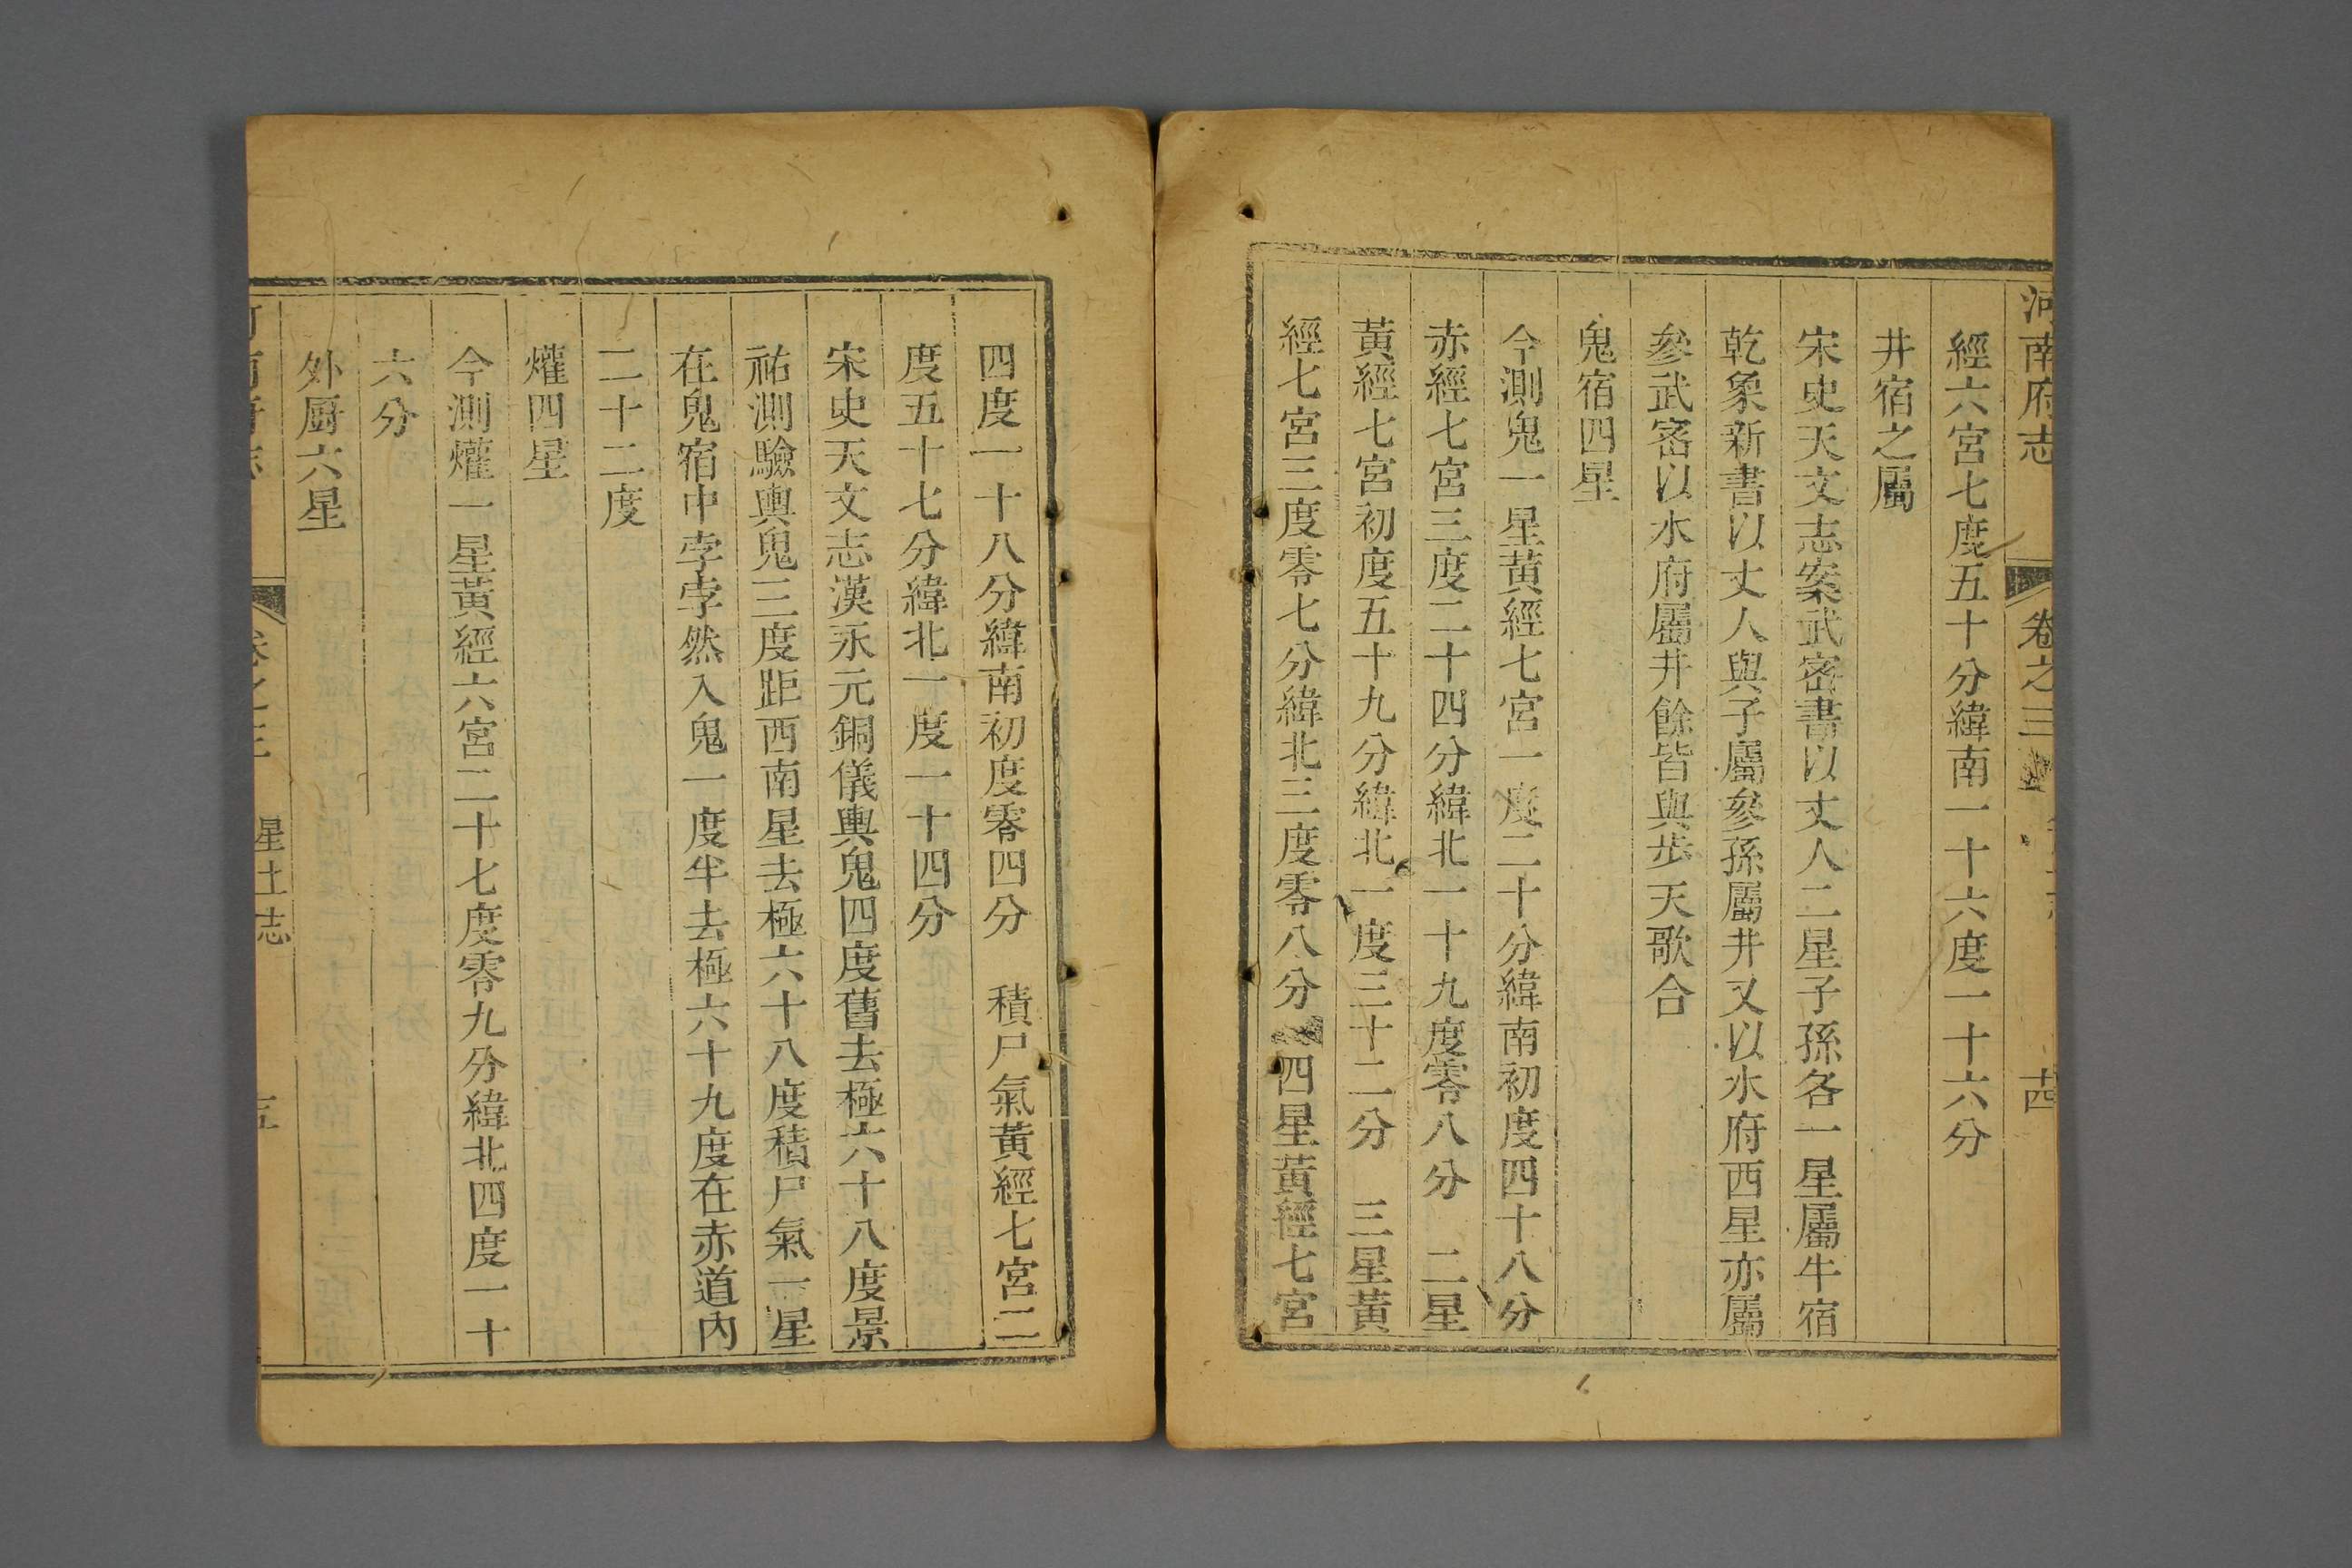 河南府志 卷之三 十四
經六宮七度五十分緯南一十六度一十六分
井宿之屬
宋史天文志案武密書以丈人二星子孫各一星屬牛宿
乾象新書以丈人與子屬參孫屬井又以水府西星亦屬
參武密以水府屬井餘皆與步天歌合
鬼宿四星
今測鬼一星黃經七宮一度二十分緯南初度四十八分
赤經七宮三度二十四分緯北一十九度零八分 二星
黃經七宮初度五十九分緯北一度三十二分 三星黃
經七宮三度零七分緯北三度零八分 四星黃經七宮
四度一十八分緯南初度零四分 積尸氣黃經七宮二
度五十七分緯北一度一十四分
宋史天文志漢永元銅儀輿鬼四度舊去極六十八度景
祐測驗輿鬼三度距西南星去極六十八度積尸氣一星
在鬼宿中孛孛然入鬼一度半去極六十九度在赤道內
二十二度
爟四星
今測爟一星黃經六宮二十七度零九分緯北四度一十
六分
外厨六星
星土志